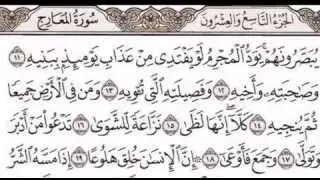 الجزء التاسع والعشرون
سورة المعارج
يُبَصَّرُونَهُمْ يَوَدُّ الْمُجْرِمُ لَوْ يَفْتَدِى مِنْ عَذَابِ يَوْمِئِذٍ بِبَنِيهِ ١١
وَصَاحِبَتِهِ وَأَخِيهِ ١٢ وَفَصِيلَتِهِ الَّتِى تُـْٔوِيهِ ١٣ وَمَنْ فِى الْأَرْضِ جَمِيعًا
ثُمَّ يُنْجِيهِ ١٤ كَلَّا إِنَّهَا لَظَى ١٥ نَزَّاعَةً لِلشَّوَى ١٦ تَدْعُوا مَنْ أَدْبَرَ
وَتَوَلَّى ١٧ وَجَمَعَ فَأَوْعَى ١٨ إِنَّ الْإِنسَانَ خُلِقَ هَلُوعًا ١٩ إِذَا مَسَّهُ الشَّرُّ